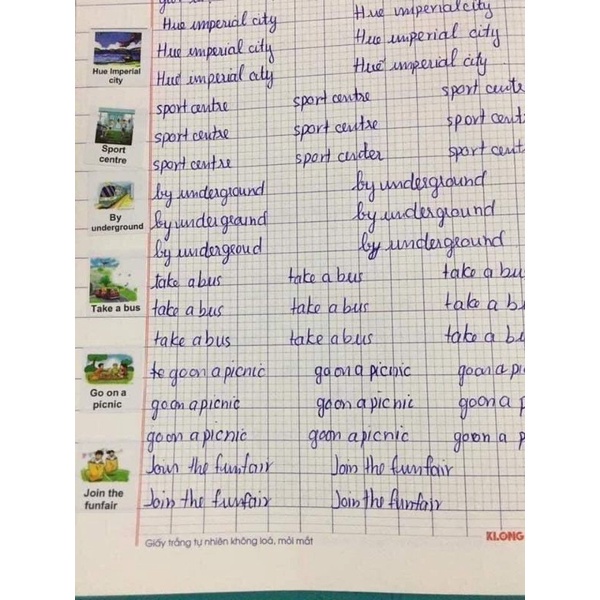 Hue imperial city Hue imperial city
Hue imperial city Hue imperial city
Hue Imperial city
Hue imperial city Hue imperial city
sport centre sport centre sport cent
Sport centre
sport centre sport centre sport cent
sport centre sport center sport cent
By underground
by underground by underground
by undergeand by underground
by undergeoud by underground
Take a bus
take a bus take a bus take a bu
take a bus take a bus take a b
take a bus take a bus take a b
Go on a picnic
to go on a picnic go on a picnic go on a pi
go on a picnic go on a picnic go on a p
go on a picnic go on a picnic go on a p
Join the funfair
Join the funfair Join the funfair
Join the funfair Join the funfair
Giấy trắng tự nhiên không loá, mỏi mắt
KLONG